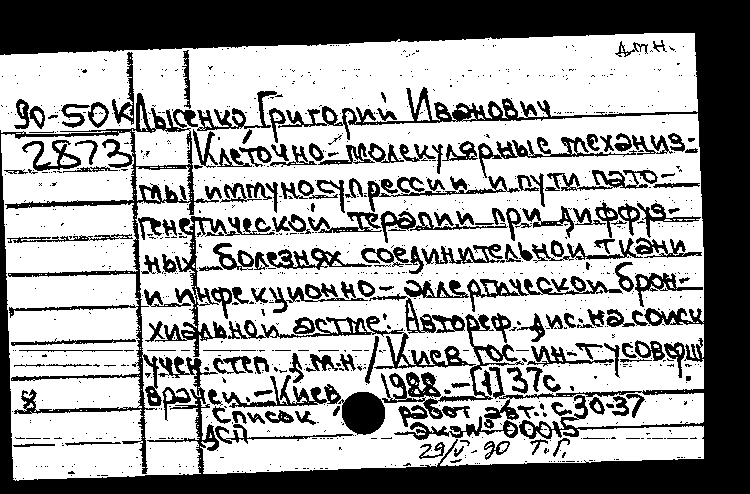 д.м.н.
90-50К Лысенко Григорий Иванович
2873 Клеточно-молекулярные механиз-
мы иммуносупрессии и пути пато-
генетической терапии при диффуз-
ных болезнях соединительной ткани
и инфекционно-аллергической брон-
хиальной астме: Автореф. дис. на соиск
учен. степ. д.м.н. / Киев гос. ин-т усоверш
врачей. - Киев 1988. - [1] 37 с.
Список работ авт.: с. 30-37
ДСП экз № 00015
29/V-90 Т.Г.